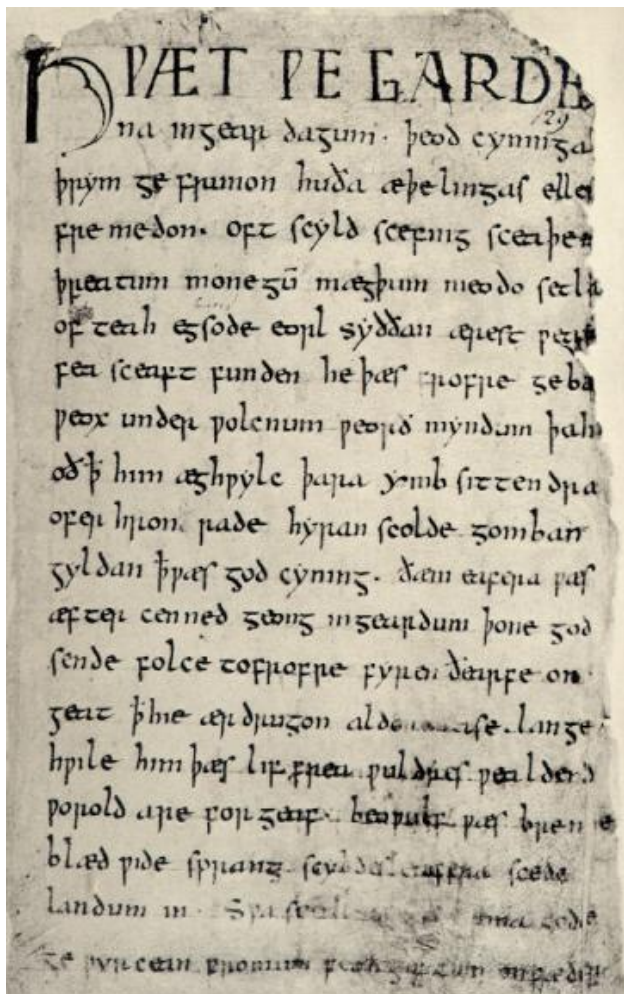 HǷÆT ǷE GARDE
na ingear dagum. þeod cyninga
þrym ge frunon huða æþelingas elle
fre medon. oft scyld scefing sceaþe
þreatum monegū mægþum meodo setla
of teah egsode eorl syððan ærest ƿear
fea sceaft funden he þæs frofre geba
ƿeox under ƿolcnum ƿeorð myndum þah
oð ꝥ him æghƿylc þara ymb sittendra
ofer hron rade hyran scolde gomban
gyldan ꝥ ƿæs god cyning. ðæm eafera ƿæs
æfter cenned geong ingeardum þone god
sende folce tofrofre fyren ðearfe on
geat ꝥ hie ær drugon aldo ase. lange
hƿile him þæs lif frea ƿuldres ƿealdend
ƿorold are for geaf. beoƿulf ƿæs breme
blæd ƿide sprang scyldes eafera scede
landum in. Sƿa sceal uma gode
ge ƿyrcean fromum feoh giftum on fæder
129